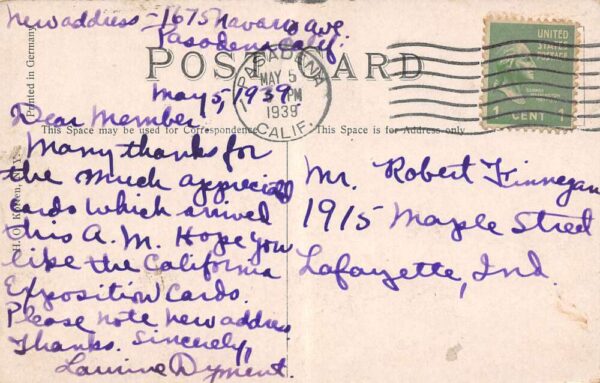 New address - 1675 Navarro Ave.
Pasadena, Calif.
POST CARD
PASADENA
MAY 5
PM
1939
CALIF.
UNITED
STATES
POSTAGE
1 CENT 1
Printed in Germany
May 5, 1939
Dear Member,
This Space may be used for Correspondence
This Space is for Address only
Many thanks for
the much appreciated
cards which arrived
this A.M. Hope you
like the California
Exposition Cards.
Please note new address
Thanks. Sincerely,
Dyment.
Mr. Robert Finnegan
1915 Maple Street
Lafayette, Ind.